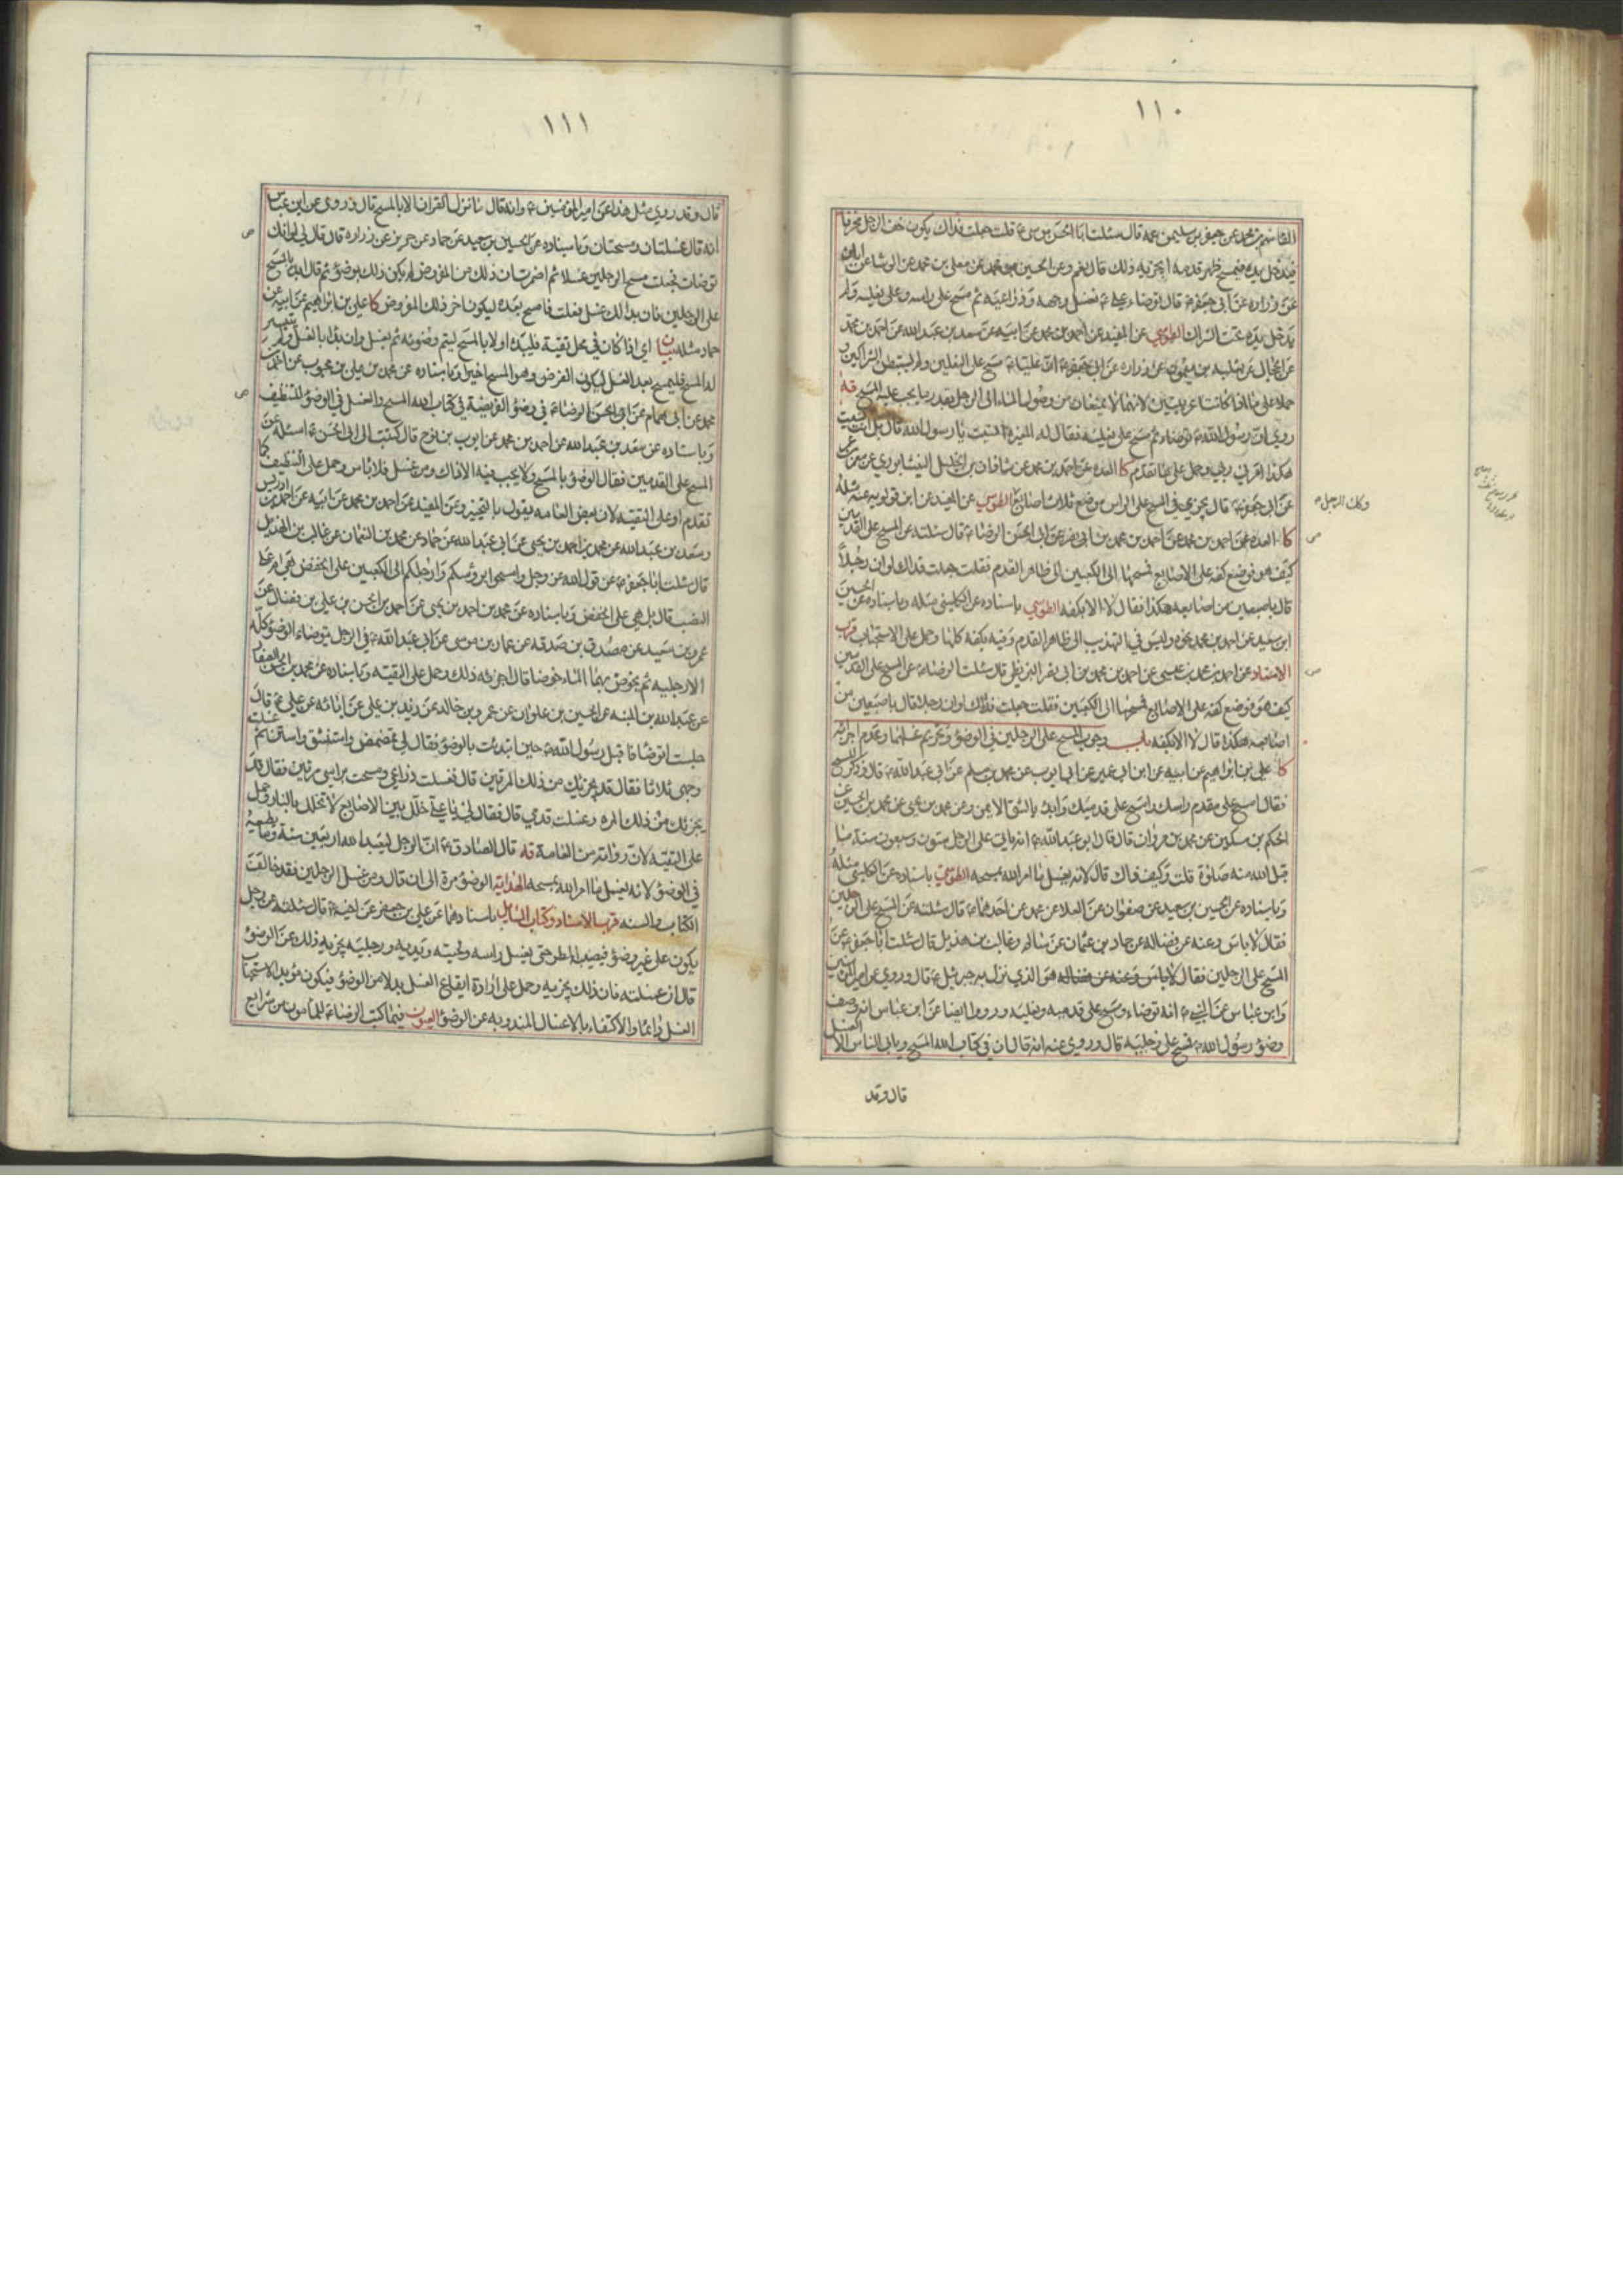 ١١٠
القاسم بن محمد عن جعفر بن سليمن عمه قال سئلت ابا الحسن موسى ع قلت جعلت فداك يكون خف الرجل مخرقا
فيدخل يده فيمسح ظهر قدمه ايجزيه ذلك قال نعم وعن الحسين بن محمد عن معلى بن محمد عن الوشا عن ابان
عن زراره عن ابى جعفر ع قال توضاء علي ع فغسل وجهه وذراعيه ثم مسح على راسه وعلى نعليه ولم
يدخل يده تحت الشراك الطوسي عن المفيد عن احمد بن محمد عن ابيه عن سعد بن عبد الله عن احمد بن محمد
عن الحجال عن ثعلبه بن ميمون عن زراره عن ابى جعفر ع ان عليا ع مسح على النعلين ولم يستبطن الشراكين
حملا على ما اذا كانتا عربيتين لانهما لا يمنعان من وصول الماء الى الرجل بقدر ما يجب عليه المسح قه
روي ان رسول الله ص توضاء ثم مسح على نعليه فقال له المغيره انسيت يا رسول الله قال بل انت نسيت
هكذا امرني ربي وحمل على ما تقدم كا العده عن احمد بن محمد عن شاذان بن الخليل النيشابوري عن معمر
عن ابى جعفر ع قال يجزي في المسح على الراس موضع ثلاث اصابع الطوسي عن المفيد عن ابن قولويه عنه مثله
وكك الرجل
كا العده عن احمد بن محمد عن احمد بن محمد بن ابى نصر عن ابى الحسن الرضا ع قال سئلته عن المسح على القدمين
كيف هو فوضع كفه على الاصابع فمسحها الى الكعبين الى ظاهر القدم فقلت جعلت فداك لو ان رجلاً
قال باصبعين من اصابعه هكذا فقال لا الا بكفه الطوسي باسناده عن الكليني مثله وباسناده عن الحسين
ابن سعيد عن احمد بن محمد نحوه وليس في التهذيب الى ظاهر القدم وفيه بكفه كلها وحمل على الاستحباب قرب
الاسناد عن احمد بن محمد بن عيسى عن احمد بن محمد بن ابى نصر البزنطي قال سئلت الرضا ع عن المسح على القدمين
كيف هو فوضع كفه على الاصابع فمسحها الى الكعبين فقلت جعلت فداك لو ان رجلا قال باصبعين من
اصابعه هكذا قال لا الا بكفه باب وجوب المسح على الرجلين في الوضوء وتحريم غسلهما وعدم اجزائه
كا علي بن ابراهيم عن ابيه عن ابن ابى عمير عن ابى ايوب عن محمد بن مسلم عن ابى عبد الله ع قال وذكر المسح
فقال امسح على مقدم راسك وامسح على قدميك وابدء بالشق الايمن وعن محمد بن يحيى عن محمد بن الحسين عن
الحكم بن مسكين عن محمد بن مروان قال قال ابو عبد الله ع انه ياتي على الرجل ستون وسبعون سنة ما
قبل الله منه صلوة قلت وكيف ذاك قال لانه يغسل ما امر الله بمسحه الطوسي باسناده عن الكليني مثله
وباسناده عن الحسين بن سعيد عن صفوان عن العلا عن محمد عن احدهما ع قال سئلته عن المسح على الرجلين
فقال لا باس وعنه عن فضاله عن حماد بن عثمان عن سالم وغالب بن هذيل قال سئلت ابا جعفر ع عن
المسح على الرجلين فقال هو الذي نزل به جبرئيل ع قال وروي عن امير المؤمنين
وابن عباس عن النبي ص انه توضاء ومسح على قدميه ونعليه ورووا ايضا عن ابن عباس انه وصف
وضوء رسول الله ص فمسح على رجليه قال وروي عنه انه قال ان في كتاب الله المسح ويابى الناس الا الغسل
قال وقد
١١١
قال وقد روي مثل هذا عن امير المؤمنين ع وانه قال ما نزل القران الا بالمسح قال وروى عن ابن عباس
انه قال غسلتان ومسحتان وباسناده عن الحسين بن سعيد عن حماد عن حريز عن زراره قال قال لي لو انك
توضات فجعلت مسح الرجلين غسلا ثم اضمرت ان ذلك من المفروض لم يكن ذلك بوضوء ثم قال ابدء بالمسح
على الرجلين فان بدا لك غسل فغسلت فامسح بعده ليكون اخر ذلك المفروض كا علي بن ابراهيم عن ابيه عن
حماد مثله بيان اي اذا كان في محل تقية فليبدء اولا بالمسح ليتم وضوئه ثم يغسل وان بدا بالغسل ولم يتيسر
له المسح فليمسح بعد الغسل ليكون الفرض وهو المسح اخيرا وباسناده عن محمد بن علي بن محبوب عن احمد بن
محمد عن ابى همام عن ابى الحسن الرضا ع في وضوء الفريضة في كتاب الله المسح والغسل في الوضوء للتنظيف
وباسناده عن سعد بن عبد الله عن احمد بن محمد عن ايوب بن نوح قال كتبت الى ابى الحسن ع اسئله عن
المسح على القدمين فقال الوضوء بالمسح ولا يجب فيه الا ذاك ومن غسل فلا باس وحمل على التنظيف كما
تقدم او على التقيه لان بعض العامه يقول بالتخيير وعن المفيد عن احمد بن محمد عن ابيه عن احمد بن ادريس
وسعد بن عبد الله عن محمد بن احمد بن يحيى عن ابى عبد الله عن حماد عن محمد بن النعمان عن غالب بن الهذيل
قال سئلت ابا جعفر ع عن قول الله عز وجل وامسحوا برؤسكم وارجلكم الى الكعبين على الخفض هي ام على
النصب قال بل هي على الخفض وباسناده عن محمد بن احمد بن يحيى عن احمد بن الحسن بن علي بن فضال عن
عمرو بن سعيد عن مصدق بن صدقه عن عمار بن موسى عن ابى عبد الله ع في الرجل يتوضاء الوضوء كله
الا رجليه ثم يخوض بهما الماء خوضا قال اجزئه ذلك وحمل على التقيه وباسناده عن محمد بن الحسن الصفار
عن عبد الله بن المنبه عن الحسين بن علوان عن عمرو بن خالد عن زيد بن علي عن ابائه عن علي ع قال
جلست اتوضا فاقبل رسول الله ص حين ابتدئت بالوضوء فقال لي تمضمض واستنشق واستن ثم غسلت
وجهى ثلاثا فقال قد يجزئك من ذلك المرتين قال فغسلت ذراعي ومسحت براسي مرتين فقال قد
يجزئك من ذلك المره وغسلت قدمي قال فقال لي يا علي خلل بين الاصابع لا تخلل بالنار وحمل
على التقيه لان رواته من العامة قه قال الصادق ع ان الرجل ليعبد الله اربعين سنة وما يطيعه
في الوضوء لانه يغسل ما امر الله بمسحه الهداية الوضوء مرة الى ان قال ومن غسل الرجلين فقد خالف
الكتاب والسنه قرب الاسناد وكتاب المسايل باسنادهما عن علي بن جعفر عن اخيه ع قال سئلته عن رجل
يكون على غير وضوء فيصيبه المطر حتى يغسل راسه ولحيته ويديه ورجليه يجزيه ذلك عن الوضوء
قال ان غسلته فان ذلك يجزيه وحمل على ارادة ايقاع الغسل بدلا من الوضوء فيكون مؤيد الاستحباب
الغسل دائما والاكتفاء بالاغسال المندوبه عن الوضوء العيون فيما كتب الرضا ع للمامون من شرايع